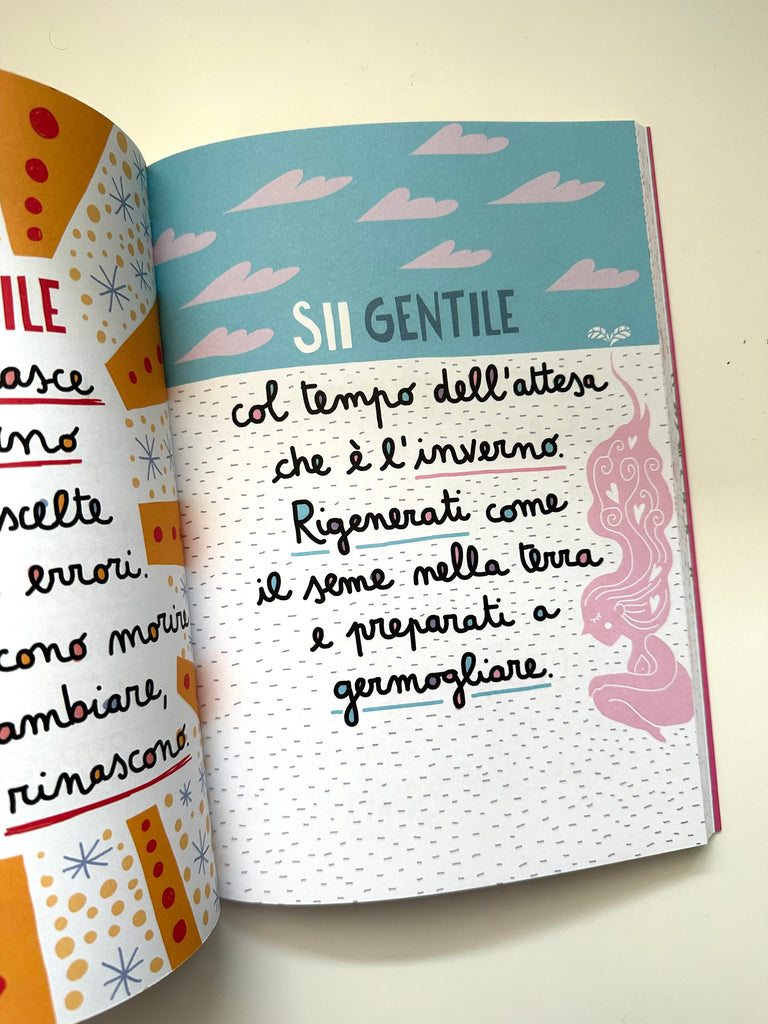 ILE
asce
ino
scelte
errori.
cono morire
ambiare,
rinascono.
SII GENTILE
col tempo dell'attesa
che è l'inverno.
Rigenerati come
il seme nella terra
e preparati a
germogliare.